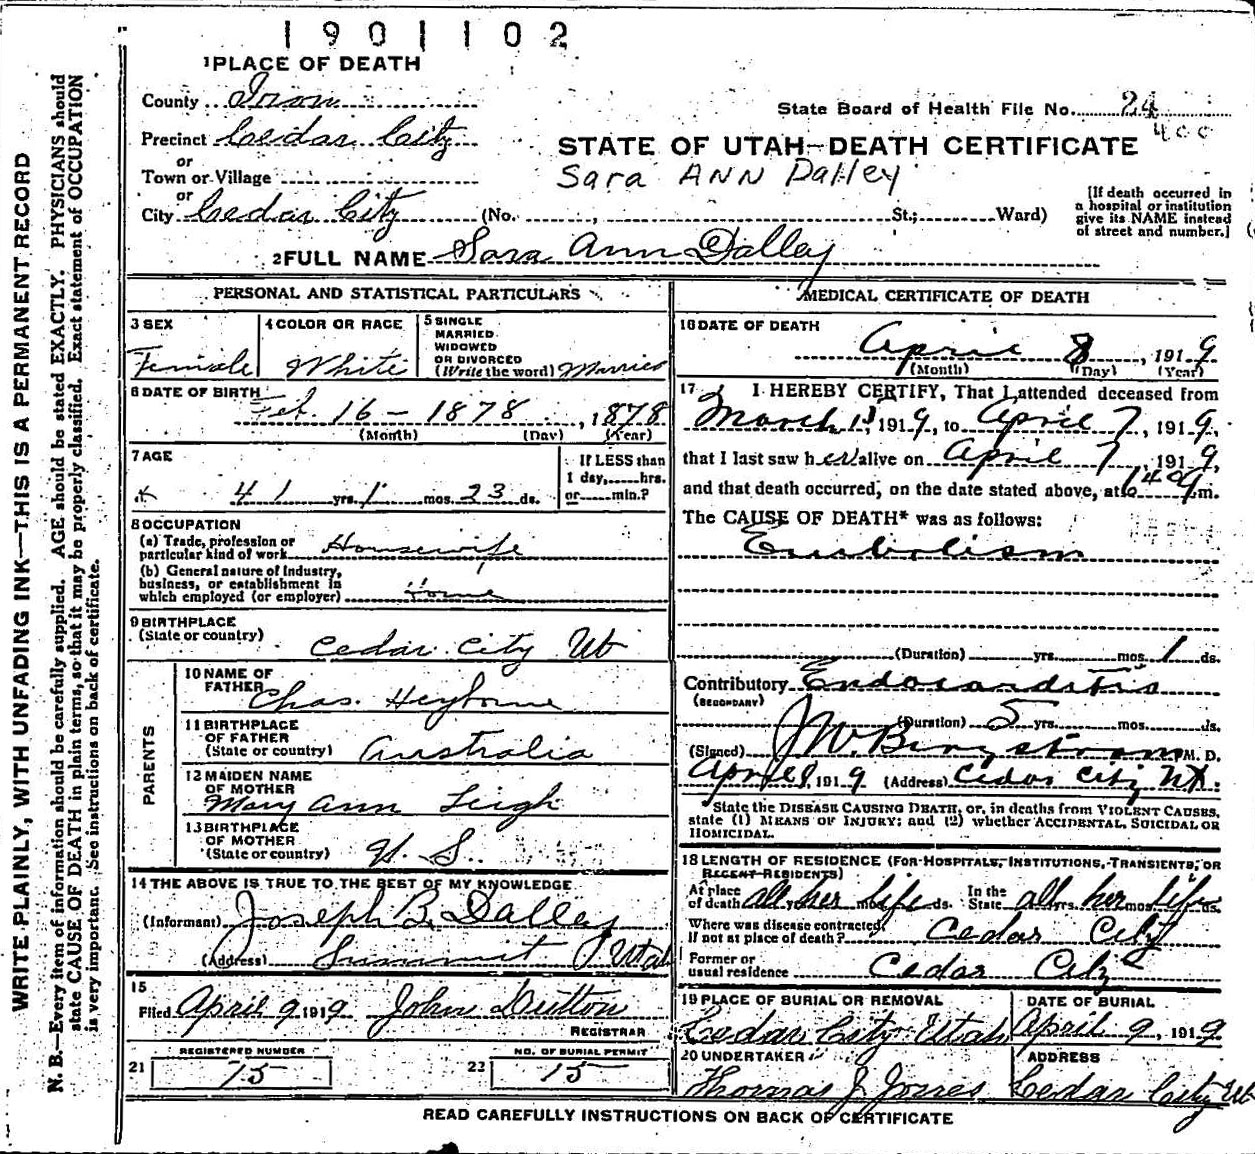 1901102
1 PLACE OF DEATH
County Iron
State Board of Health File No. 24
400
Precinct Cedar City
STATE OF UTAH—DEATH CERTIFICATE
or
Town or Village
Sara ANN Dalley
or
City Cedar City (No. , St.; Ward)
[If death occurred in
a hospital or institution
give its NAME instead
of street and number.]
2 FULL NAME Sara Ann Dalley
PERSONAL AND STATISTICAL PARTICULARS
3 SEX
Female
4 COLOR OR RACE
White
5 SINGLE
MARRIED
WIDOWED
OR DIVORCED
(Write the word) Married
6 DATE OF BIRTH
Feb. 16 - 1878, 1878
(Month) (Day) (Year)
7 AGE
41 yrs. 1 mos. 23 ds.
If LESS than
1 day, hrs.
or min.?
8 OCCUPATION
(a) Trade, profession or
particular kind of work Housewife
(b) General nature of industry,
business, or establishment in
which employed (or employer) Home
9 BIRTHPLACE
(State or country)
Cedar City Ut
PARENTS
10 NAME OF
FATHER
Chas. Heyborne
11 BIRTHPLACE
OF FATHER
(State or country) Australia
12 MAIDEN NAME
OF MOTHER
Mary Ann Leigh
13 BIRTHPLACE
OF MOTHER
(State or country) U. S.
14 THE ABOVE IS TRUE TO THE BEST OF MY KNOWLEDGE
(Informant) Joseph B. Dalley
(Address) Summit Utah
15
Filed April 9 1919 John Dutton
REGISTRAR
21 REGISTERED NUMBER
15
22 NO. OF BURIAL PERMIT
15
MEDICAL CERTIFICATE OF DEATH
16 DATE OF DEATH
April 8, 1919
(Month) (Day) (Year)
17 I HEREBY CERTIFY, That I attended deceased from
March 13, 1919, to April 7, 1919,
that I last saw her alive on April 7, 1919,
and that death occurred, on the date stated above, at m.
The CAUSE OF DEATH* was as follows:
Embolism
(Duration) yrs. mos. 1 ds.
Contributory Endocarditis
(SECONDARY)
(Duration) 5 yrs. mos. ds.
(Signed) J W Bergstrom M. D.
April 8, 1919 (Address) Cedar City Ut.
State the DISEASE CAUSING DEATH, or, in deaths from VIOLENT CAUSES,
state (1) MEANS OF INJURY; and (2) whether ACCIDENTAL, SUICIDAL OR
HOMICIDAL.
18 LENGTH OF RESIDENCE (FOR HOSPITALS, INSTITUTIONS, TRANSIENTS, OR
RECENT RESIDENTS)
At place
of death all yrs. her mos. life ds.
In the
State all yrs. her mos. life ds.
Where was disease contracted,
if not at place of death? Cedar City
Former or
usual residence Cedar City
19 PLACE OF BURIAL OR REMOVAL
Cedar City Utah
DATE OF BURIAL
April 9, 1919
20 UNDERTAKER
Thomas J Jones
ADDRESS
Cedar City Ut
READ CAREFULLY INSTRUCTIONS ON BACK OF CERTIFICATE
WRITE PLAINLY, WITH UNFADING INK—THIS IS A PERMANENT RECORD
N. B.—Every item of information should be carefully supplied. AGE should be stated EXACTLY. PHYSICIANS should
state CAUSE OF DEATH in plain terms, so that it may be properly classified. Exact statement of OCCUPATION
is very important. See instructions on back of certificate.